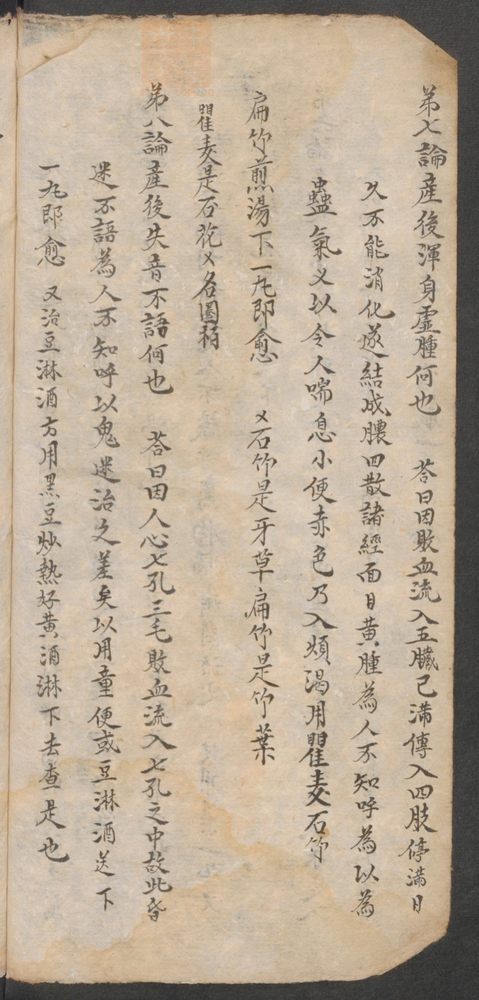 第七論產後渾身虛腫何也　荅曰因敗血流入五臟已滿傳入四肢停滿日
久不能消化遂結成膿四散諸經面目黃腫為人不知呼為以為
蠱氣又以令人喘息小便赤色乃入煩渴用瞿麦石竹
扁竹煎湯下一丸即愈　又石竹是牙草扁竹是竹葉
瞿麦是石花又名圖
第八論產後失音不語何也　荅曰因人心七孔三毛敗血流入七孔之中故此昏
迷不語為人不知呼以鬼迷治之差矣以用童便或豆淋酒送下
一丸即愈　又治豆淋酒方用黑豆炒熱好黃酒淋下去查是也